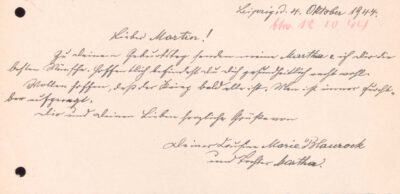 Leipzig d. 4. Oktober 1944.
12 10 44
Lieber Martin!
Zu deinem Geburtstag senden meine Martha u. ich dir die
besten Wünsche. Hoffentlich befindest du dich gesundheitlich recht wohl.
Wollen hoffen, daß der Krieg bald alle ist. Man ist immer furcht-
bar aufgeregt.
Dir und deinen Lieben herzliche Grüße von
Deiner Cousine Marie Blaurock
und Tochter Martha.